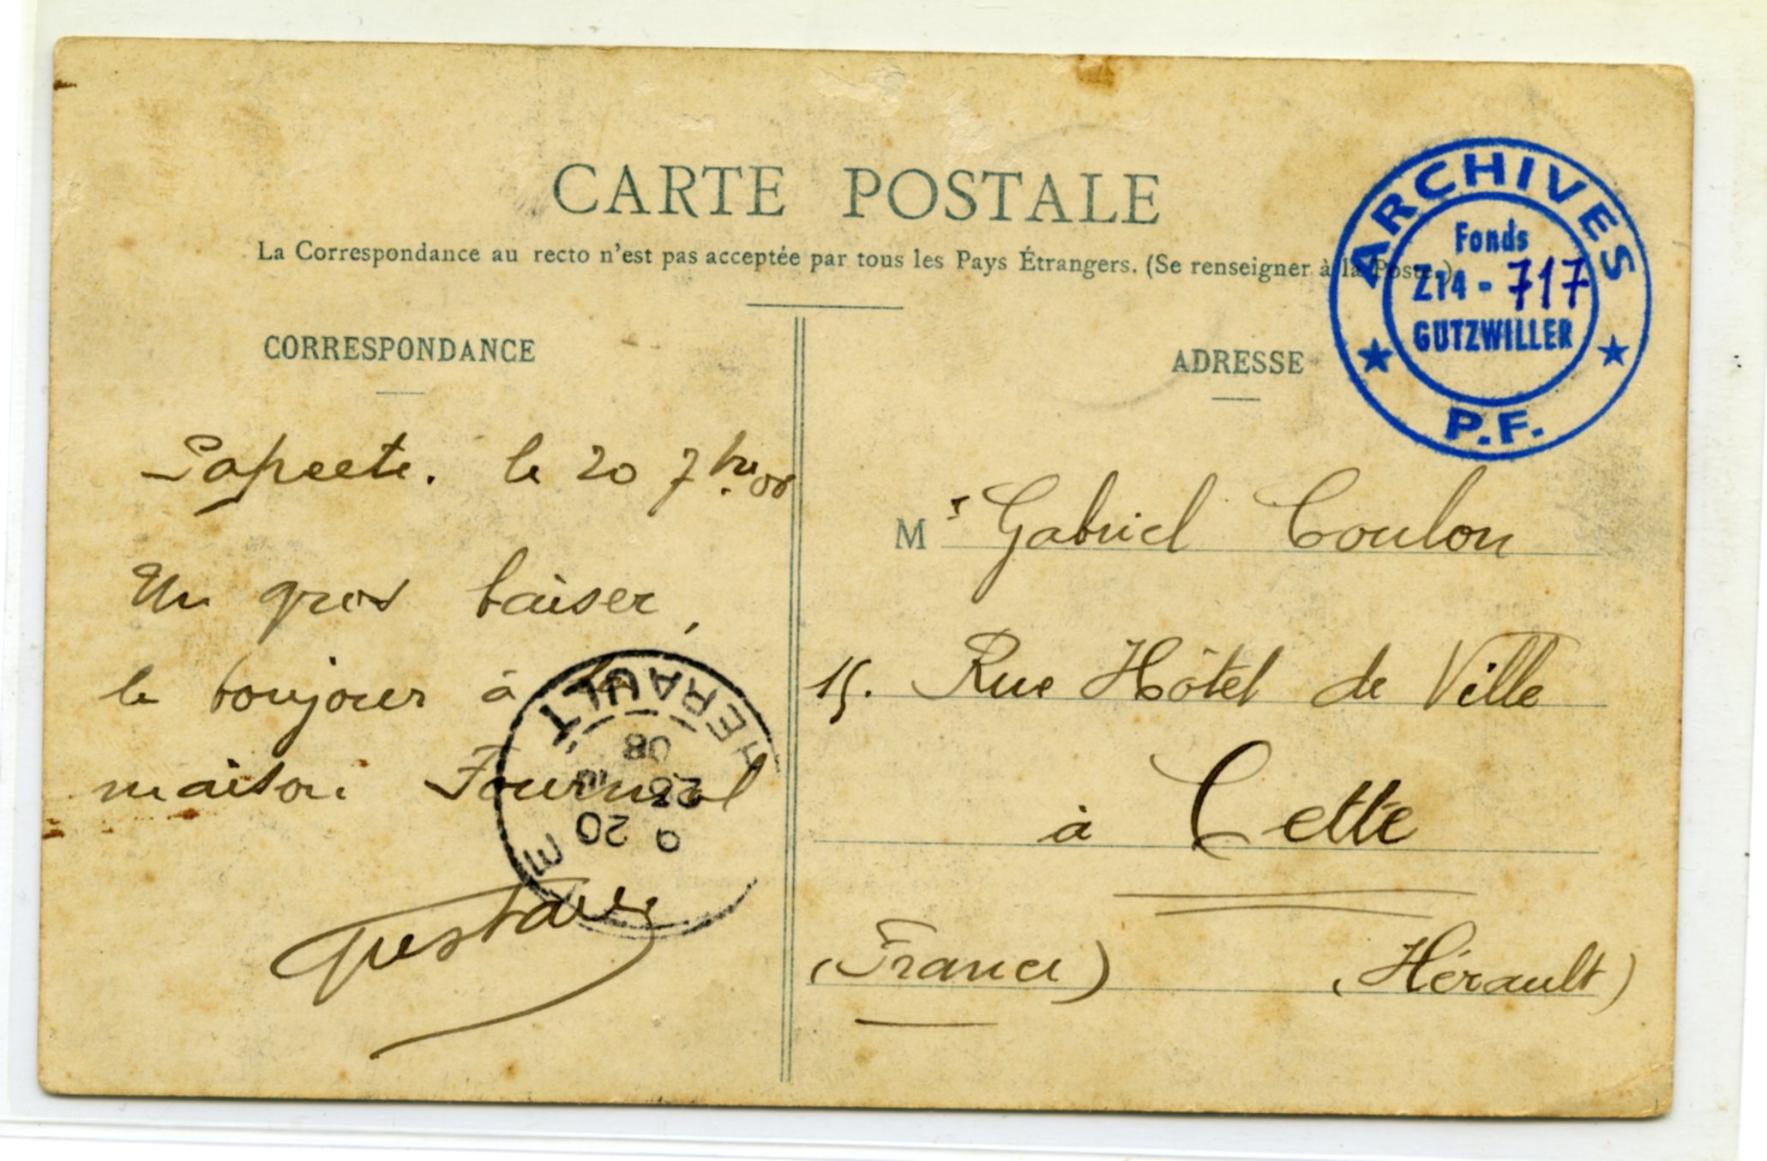 CARTE POSTALE
La Correspondance au recto n'est pas acceptée par tous les Pays Étrangers. (Se renseigner à la Poste.)
ARCHIVES
Fonds
Z14 - 717
GUTZWILLER
P.F.
CORRESPONDANCE
Papeete. le 20 7bre 08
Un gros baiser,
le toujours à la
maison Fournial
Gustave
HERAULT
9 20
28
08
ADRESSE
Mr Gabriel Coulon
15. Rue Hôtel de Ville
à Cette
(France) (Hérault)